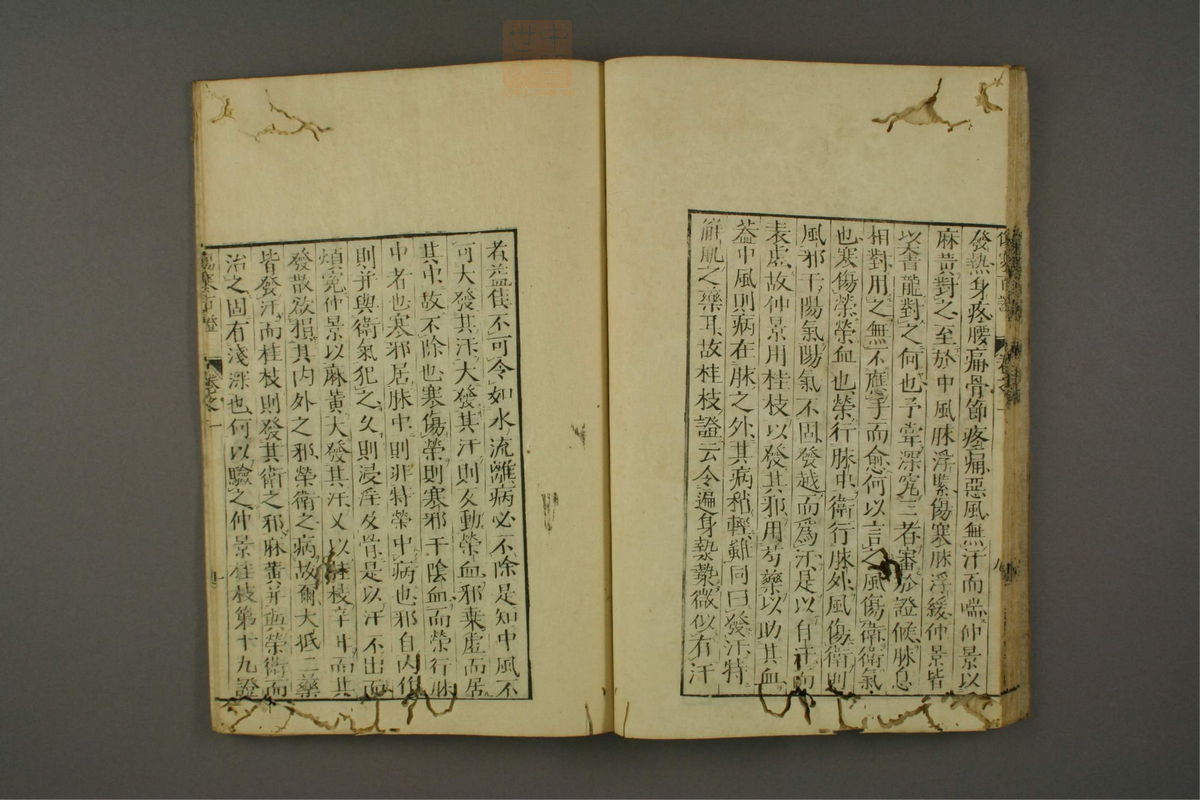 發熱身疼腰痛骨節疼痛惡風無汗而喘仲景以
麻黃對之至於中風脉浮緊傷寒脉浮緩仲景皆
以青龍對之何也予嘗深究三者審於證候脉息
相對用之無不應手而愈何以言之風傷衛衛氣
也寒傷榮榮血也榮行脉中衛行脉外風傷衛則
風邪干陽氣陽氣不固發越而為汗是以自汗而
表虛故仲景用桂枝以發其邪用芍藥以助其血
葢中風則病在脉之外其病稍輕雖同曰發汗特
觧肌之藥耳故桂枝證云令遍身漐漐微似有汗
者益佳不可令如水流離病必不除是知中風不
可大發其汗大發其汗則反動榮血邪乗虛而居
其中故不除也寒傷榮則寒邪干陰血而榮行脉
中者也寒邪居脉中則非特榮中病也邪自内作
則并與衛氣犯之久則浸淫及骨是以汗不出而
煩寃仲景以麻黃大發其汗又以桂枝辛甘而其
發散欲損其内外之邪榮衛之病故爾大抵二藥
皆發汗而桂枝則發其衛之邪麻黃并與榮衛而
治之固有淺深也何以驗之仲景桂枝第十九證
傷寒百證